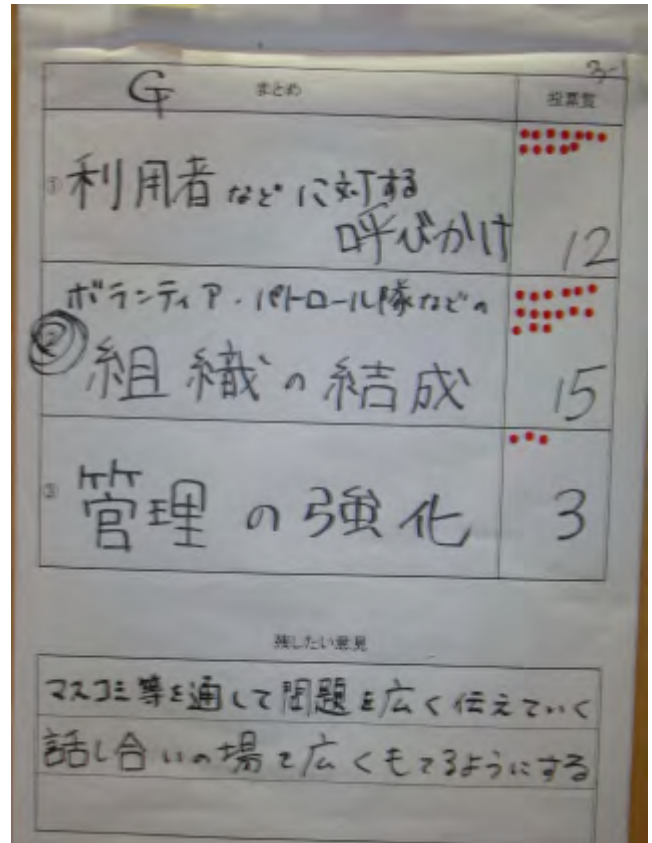 3-1
G まとめ 投票数
①利用者などに対する
呼びかけ 12
ボランティア・パトロール隊などの
②組織の結成 15
③管理の強化 3
残したい意見
マスコミ等を通して問題を広く伝えていく
話し合いの場を広くもてるようにする